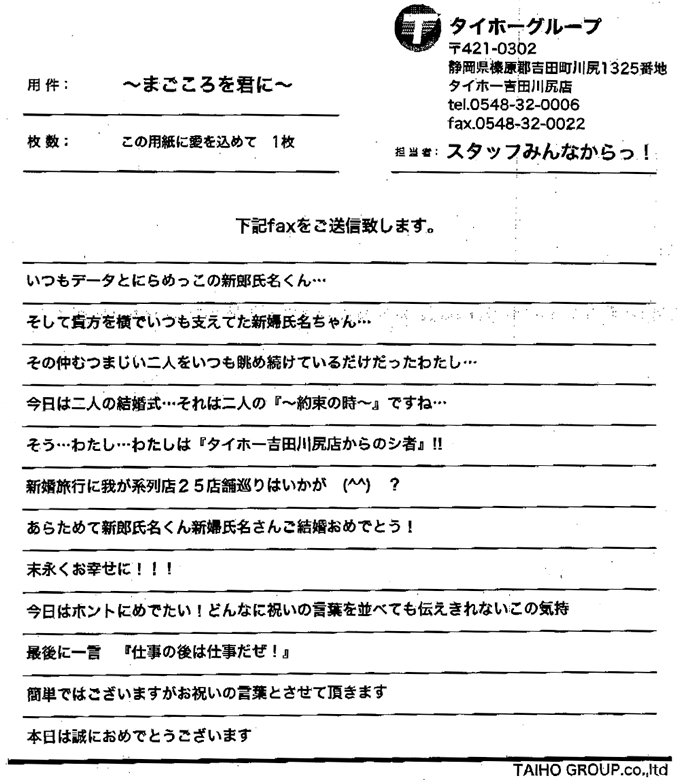 T
タイホーグループ
〒421-0302
静岡県榛原郡吉田町川尻1325番地
タイホー吉田川尻店
tel.0548-32-0006
fax.0548-32-0022
用件： 〜まごころを君に〜
枚数： この用紙に愛を込めて 1枚
担当者： スタッフみんなからっ！
下記faxをご送信致します。
いつもデータとにらめっこの新郎氏名くん…
そして貴方を横でいつも支えてた新婦氏名ちゃん…
その仲むつまじい二人をいつも眺め続けているだけだったわたし…
今日は二人の結婚式…それは二人の『〜約束の時〜』ですね…
そう…わたし…わたしは『タイホー吉田川尻店からのシ者』!!
新婚旅行に我が系列店２５店舗巡りはいかが (^^) ？
あらためて新郎氏名くん新婦氏名さんご結婚おめでとう！
末永くお幸せに！！！
今日はホントにめでたい！どんなに祝いの言葉を並べても伝えきれないこの気持
最後に一言 『仕事の後は仕事だぜ！』
簡単ではございますがお祝いの言葉とさせて頂きます
本日は誠におめでとうございます
TAIHO GROUP.co.,ltd